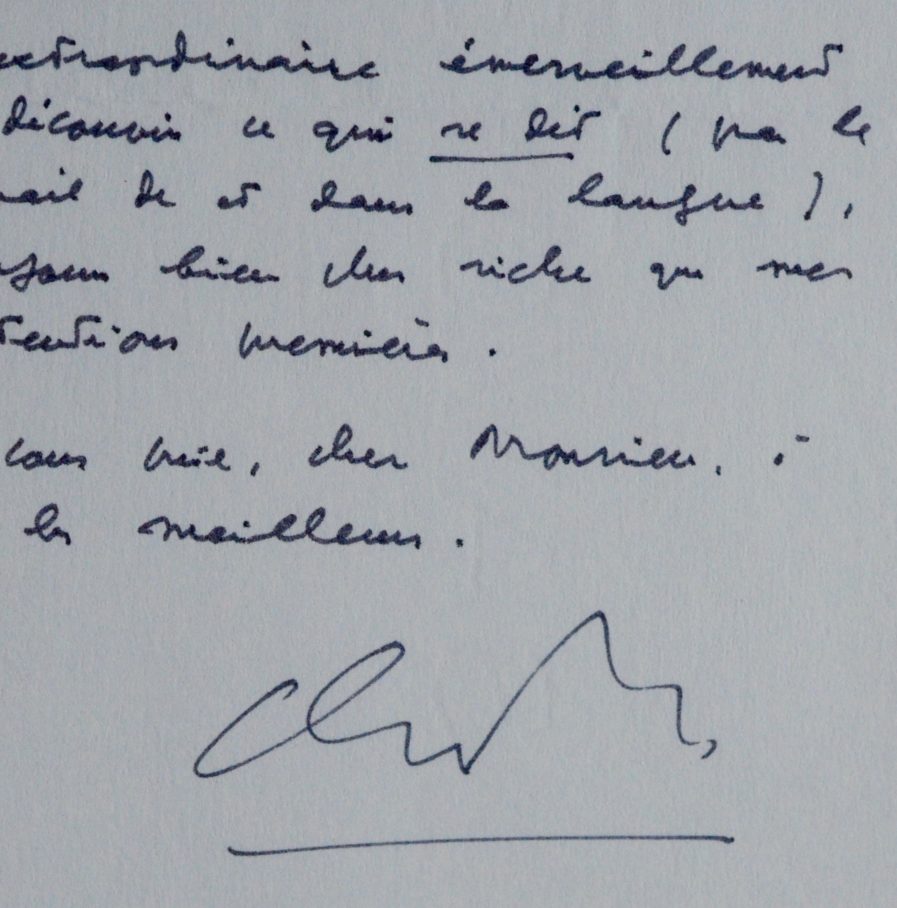 extraordinaire émerveillement
découvrir ce qui se dit (par le
vail de et dans la langue),
bien plus riche que mes
tentions premières.
vous prie, cher Monsieur, à
les meilleurs.